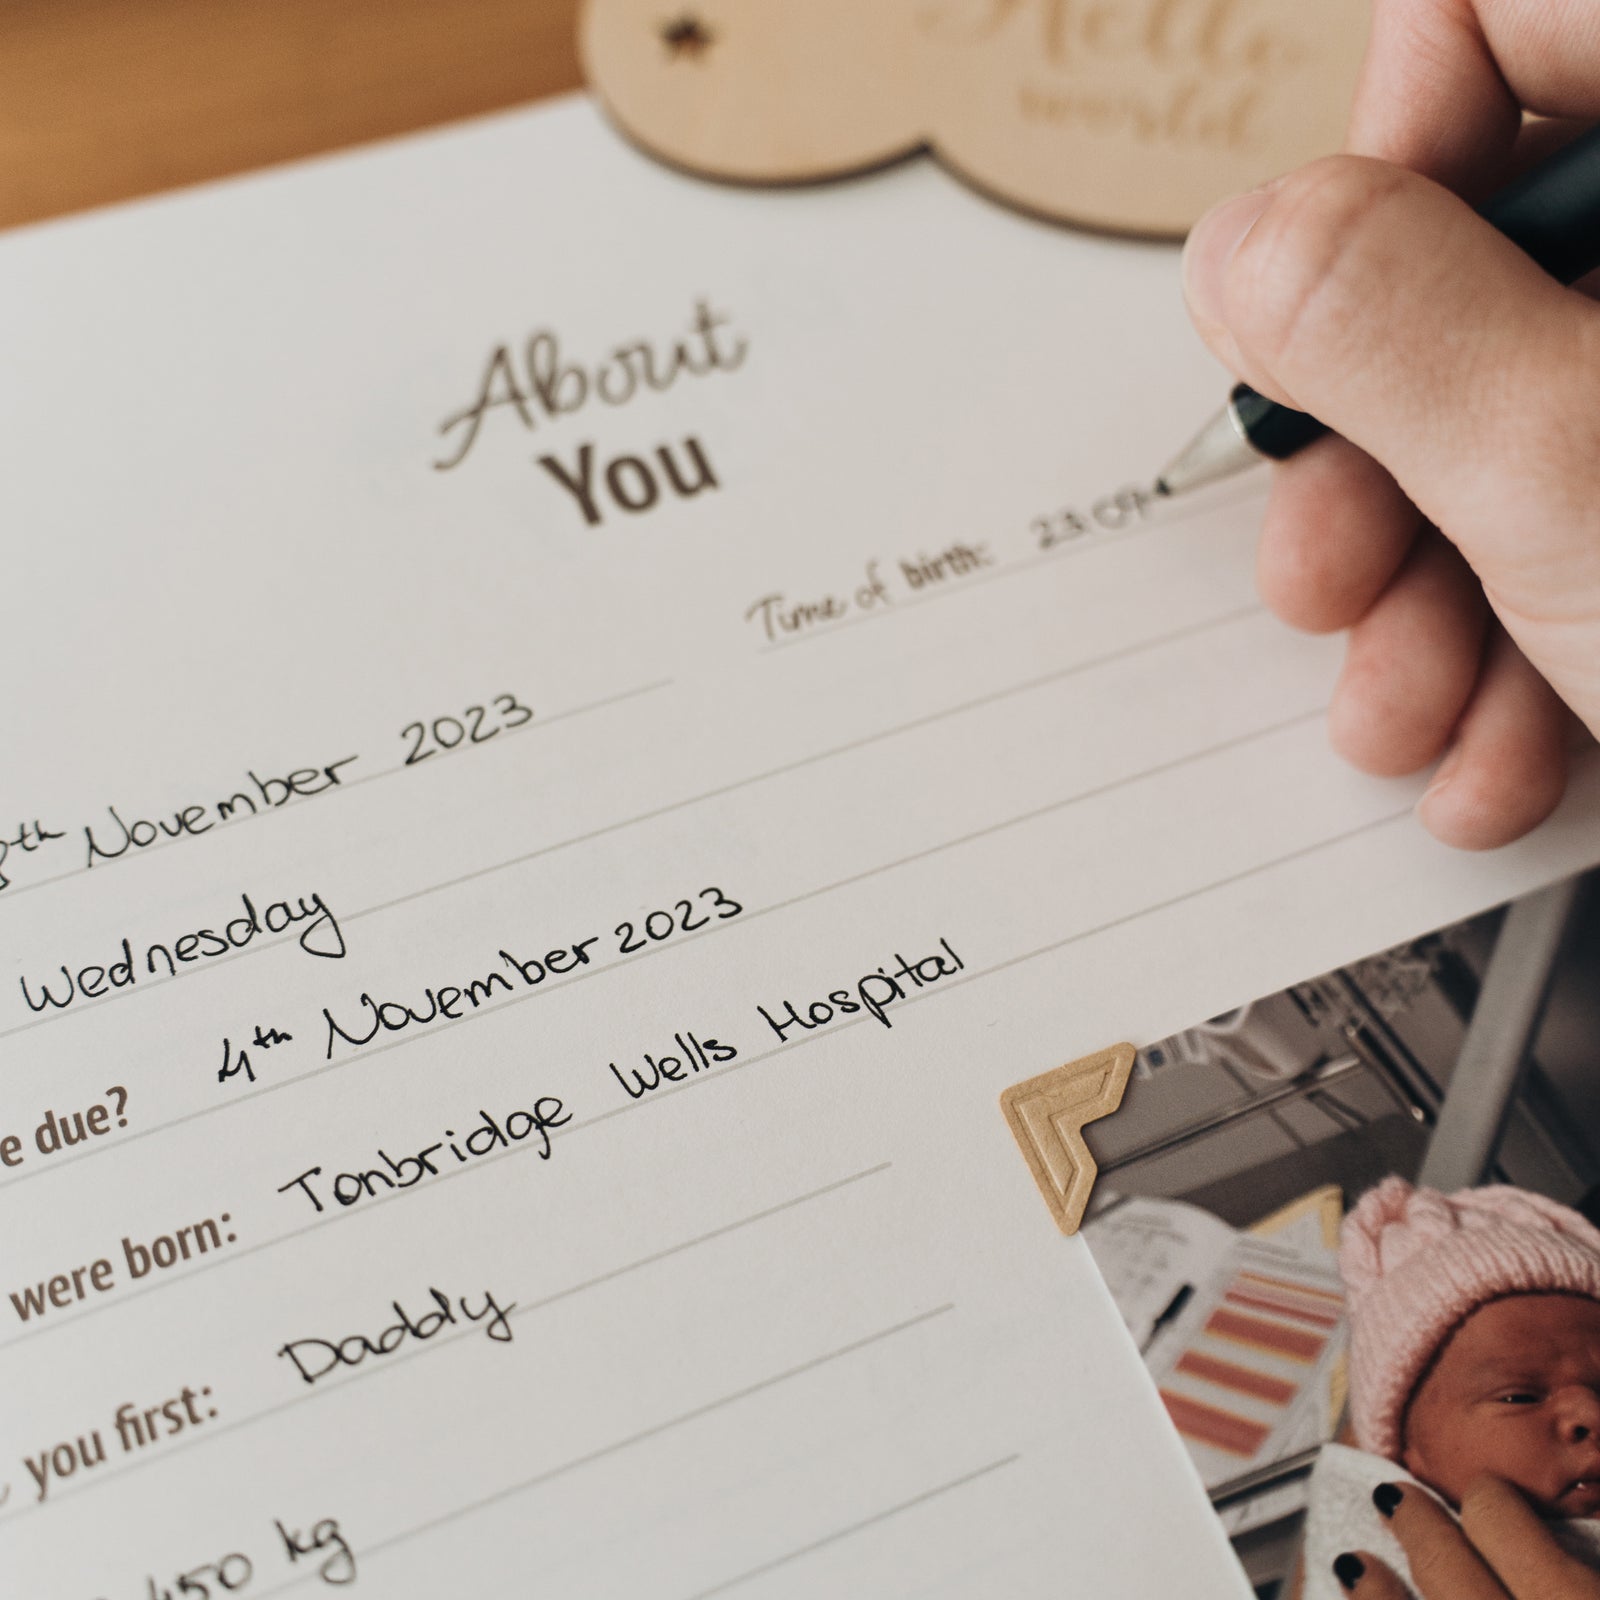 Hello
world
About
You
Time of birth: 23 09
8th November 2023
Wednesday
e due? 4th November 2023
were born: Tonbridge Wells Hospital
you first: Daddy
450 kg